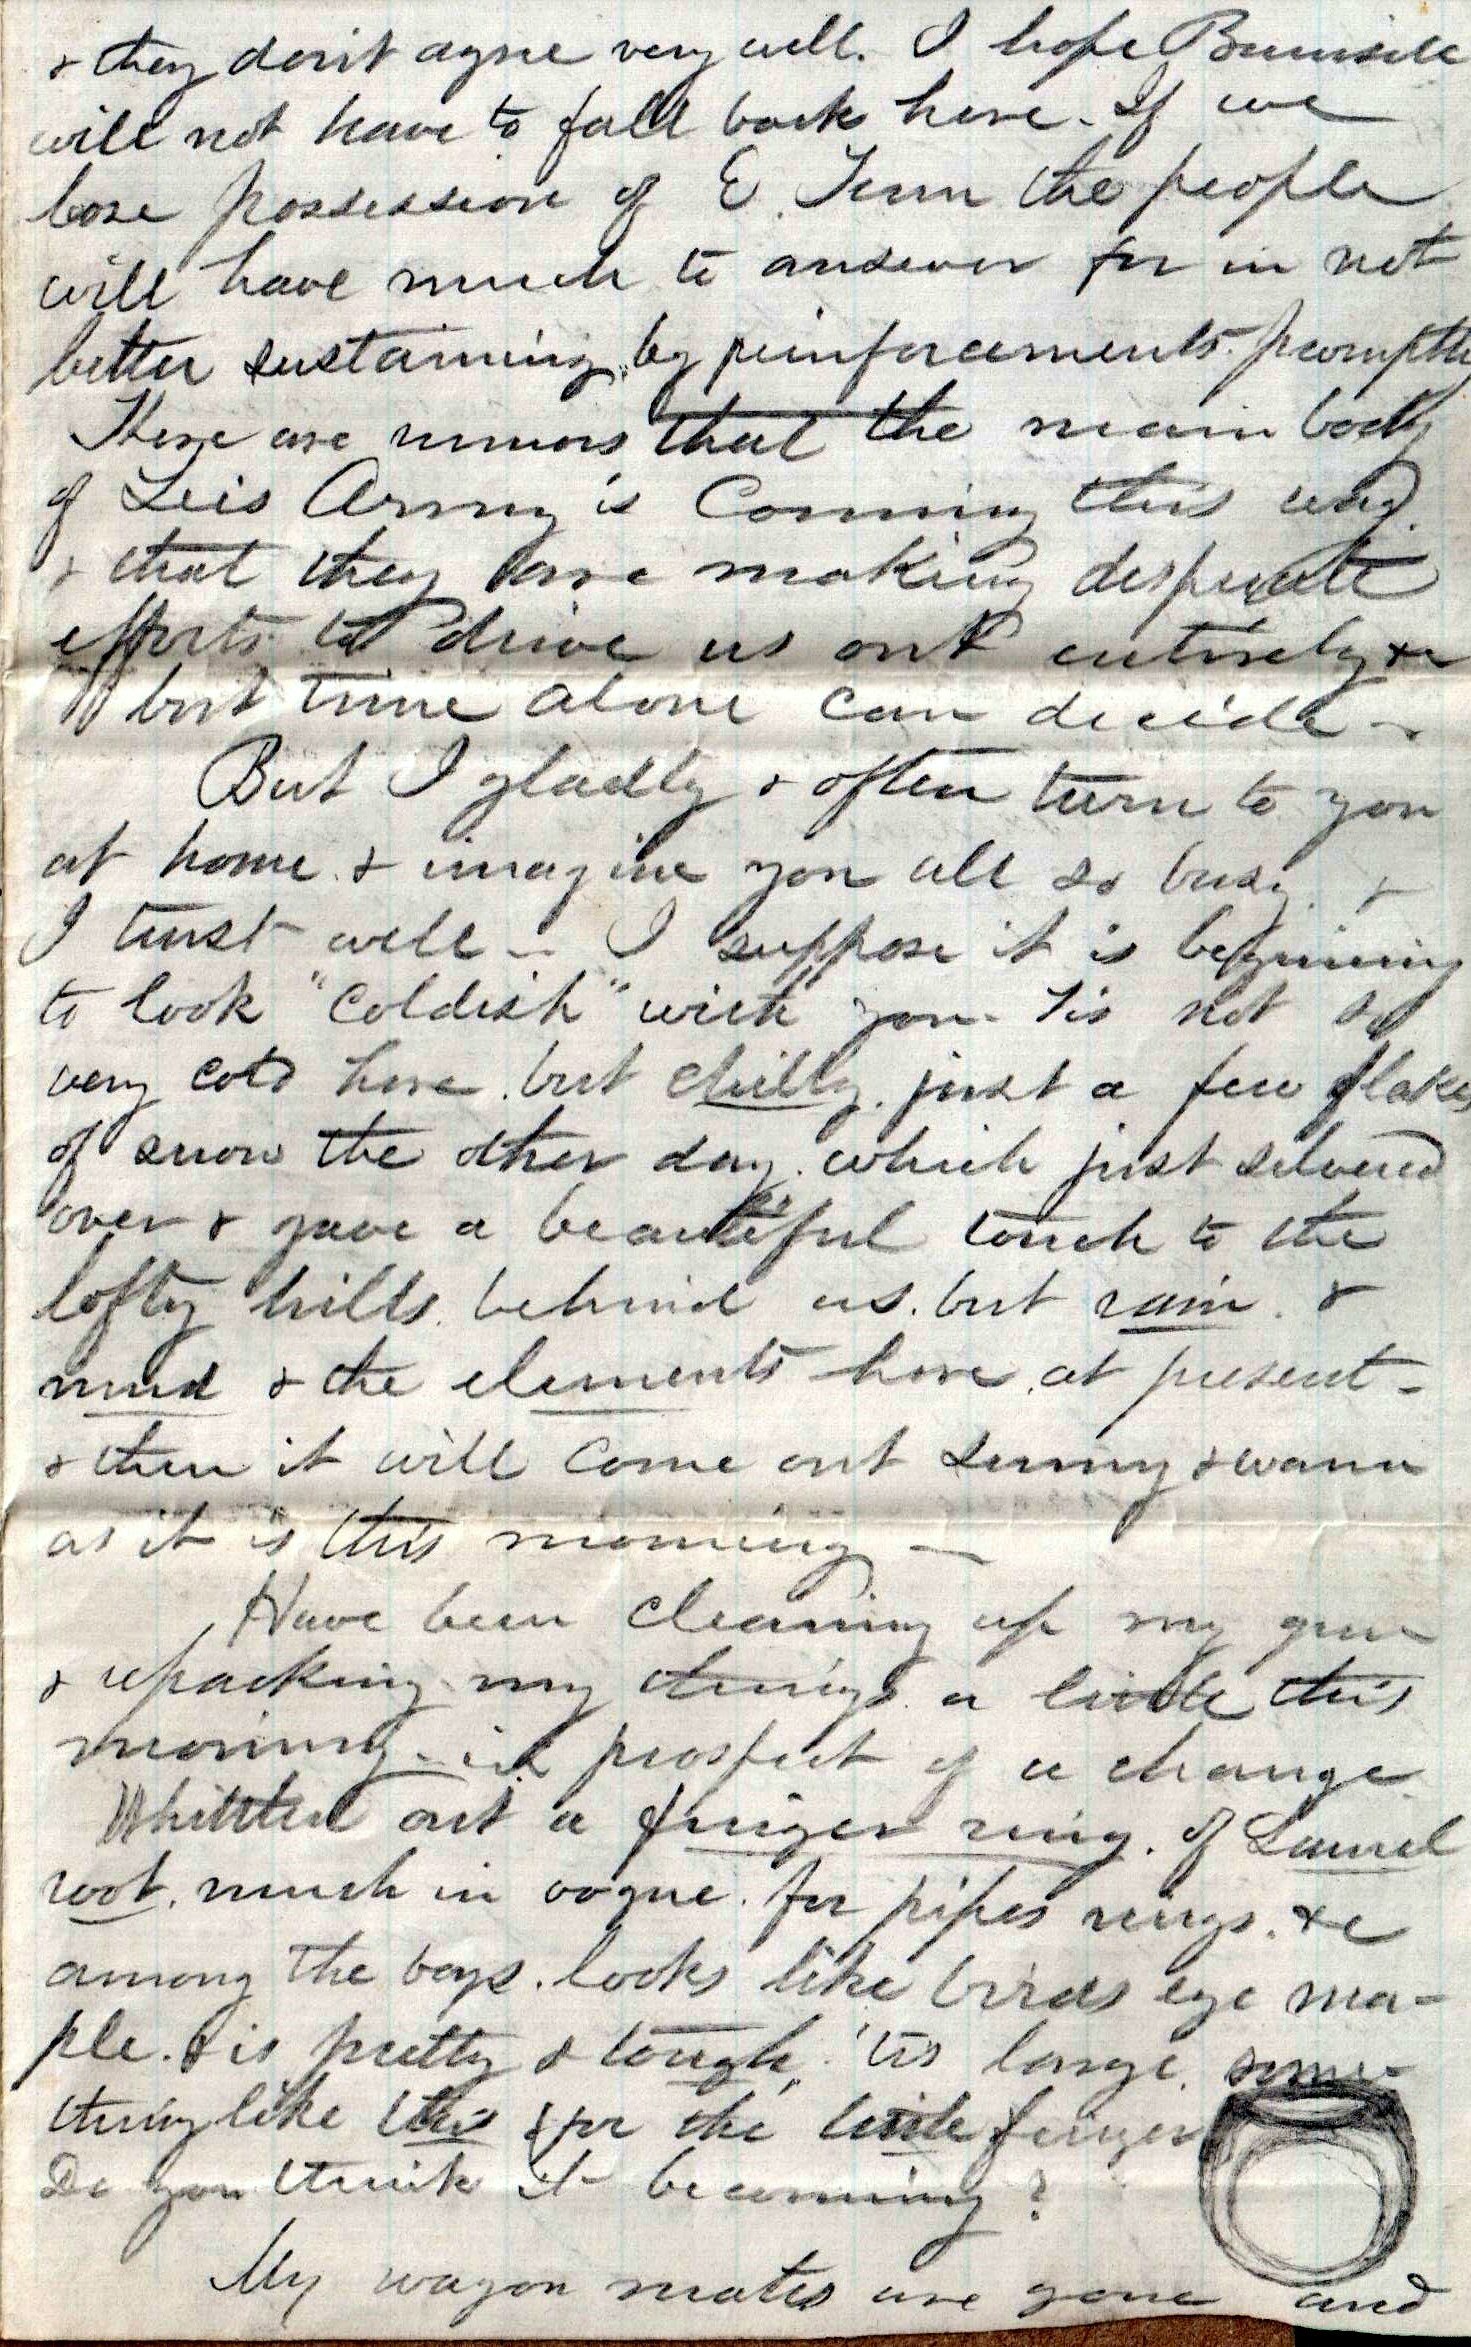 & they don't agree very well. I hope Burnside
will not have to fall back here. If we
lose possession of E. Tenn the people
will have much to answer for in not
better sustaining by reinforcements promptly
There are rumors that the main body
of Leis Army is Coming this way
& that they are making desperate
efforts to drive us out entirely &c
but time alone can decide -
But I gladly & often turn to you
at home & imagine you all so busy &
I trust well - I suppose it is beginning
to look "Coldish" with you. Tis not so
very cold here. but chilly. just a few flakes
of snow the other day. which just silvered
over & gave a beautiful touch to the
lofty hills. behind us. but rain. &
mud & the elements here. at present -
& then it will come out sunny & warm
as it is this morning -
Have been cleaning up my gun
& repacking my things a little this
morning - in prospect of a change
Whittled out a finger ring. of Laurel
root. much in vogue. for pipes rings. &c
among the boys. looks like birds eye ma-
ple. & is pretty & tough. 'tis large. some-
thing like this for the little finger
Do you think it becoming?
My wagon mates are gone and